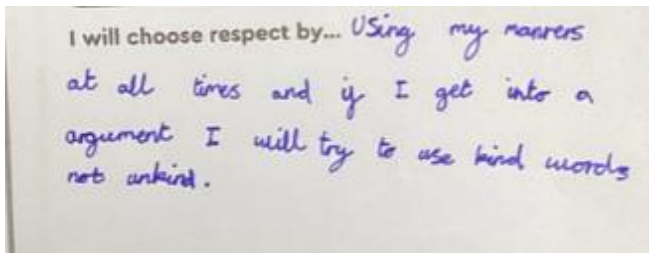 I will choose respect by... Using my manners
at all times and if I get into a
argument I will try to use kind words
not unkind.